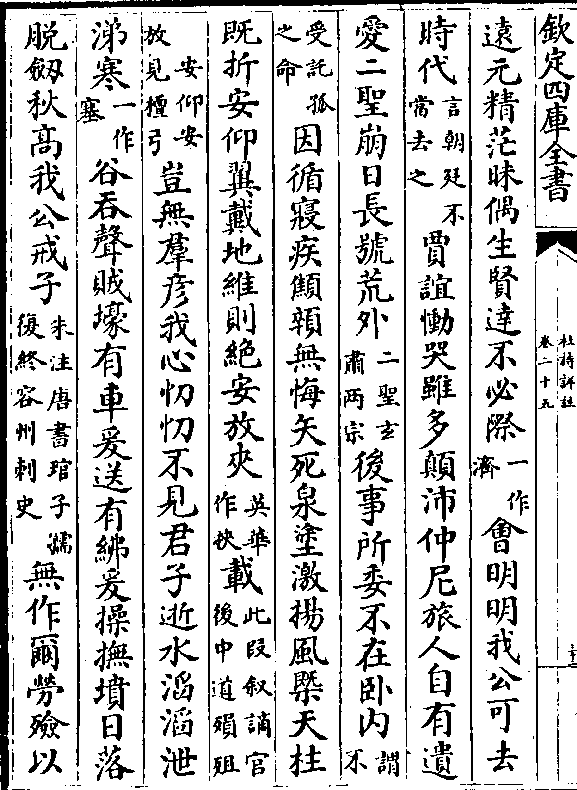 欽定四庫全書
杜詩詳註
卷二十五
遠元精茫昧偶生賢達不必際一作濟會明明我公可去
時代言朝廷不當去之賈誼慟哭雖多顛沛仲尼旅人自有遺
愛二聖崩日長號荒外二聖玄肅兩宗後事所委不在卧内謂不
受託孤之命因循寢疾顦顇無悔矢死泉塗激揚風槩天柱
既折安仰翼戴地維則絶安放夾英華作挾載此段叙謫官後中道殞殂
安仰安放見檀弓豈無羣彦我心忉忉不見君子逝水滔滔泄
涕寒一作塞谷吞聲賊壕有車爰送有紼爰操撫墳日落
脱劔秋高我公戒子朱注唐書琯子孺復終容州刺史無作爾勞殮以